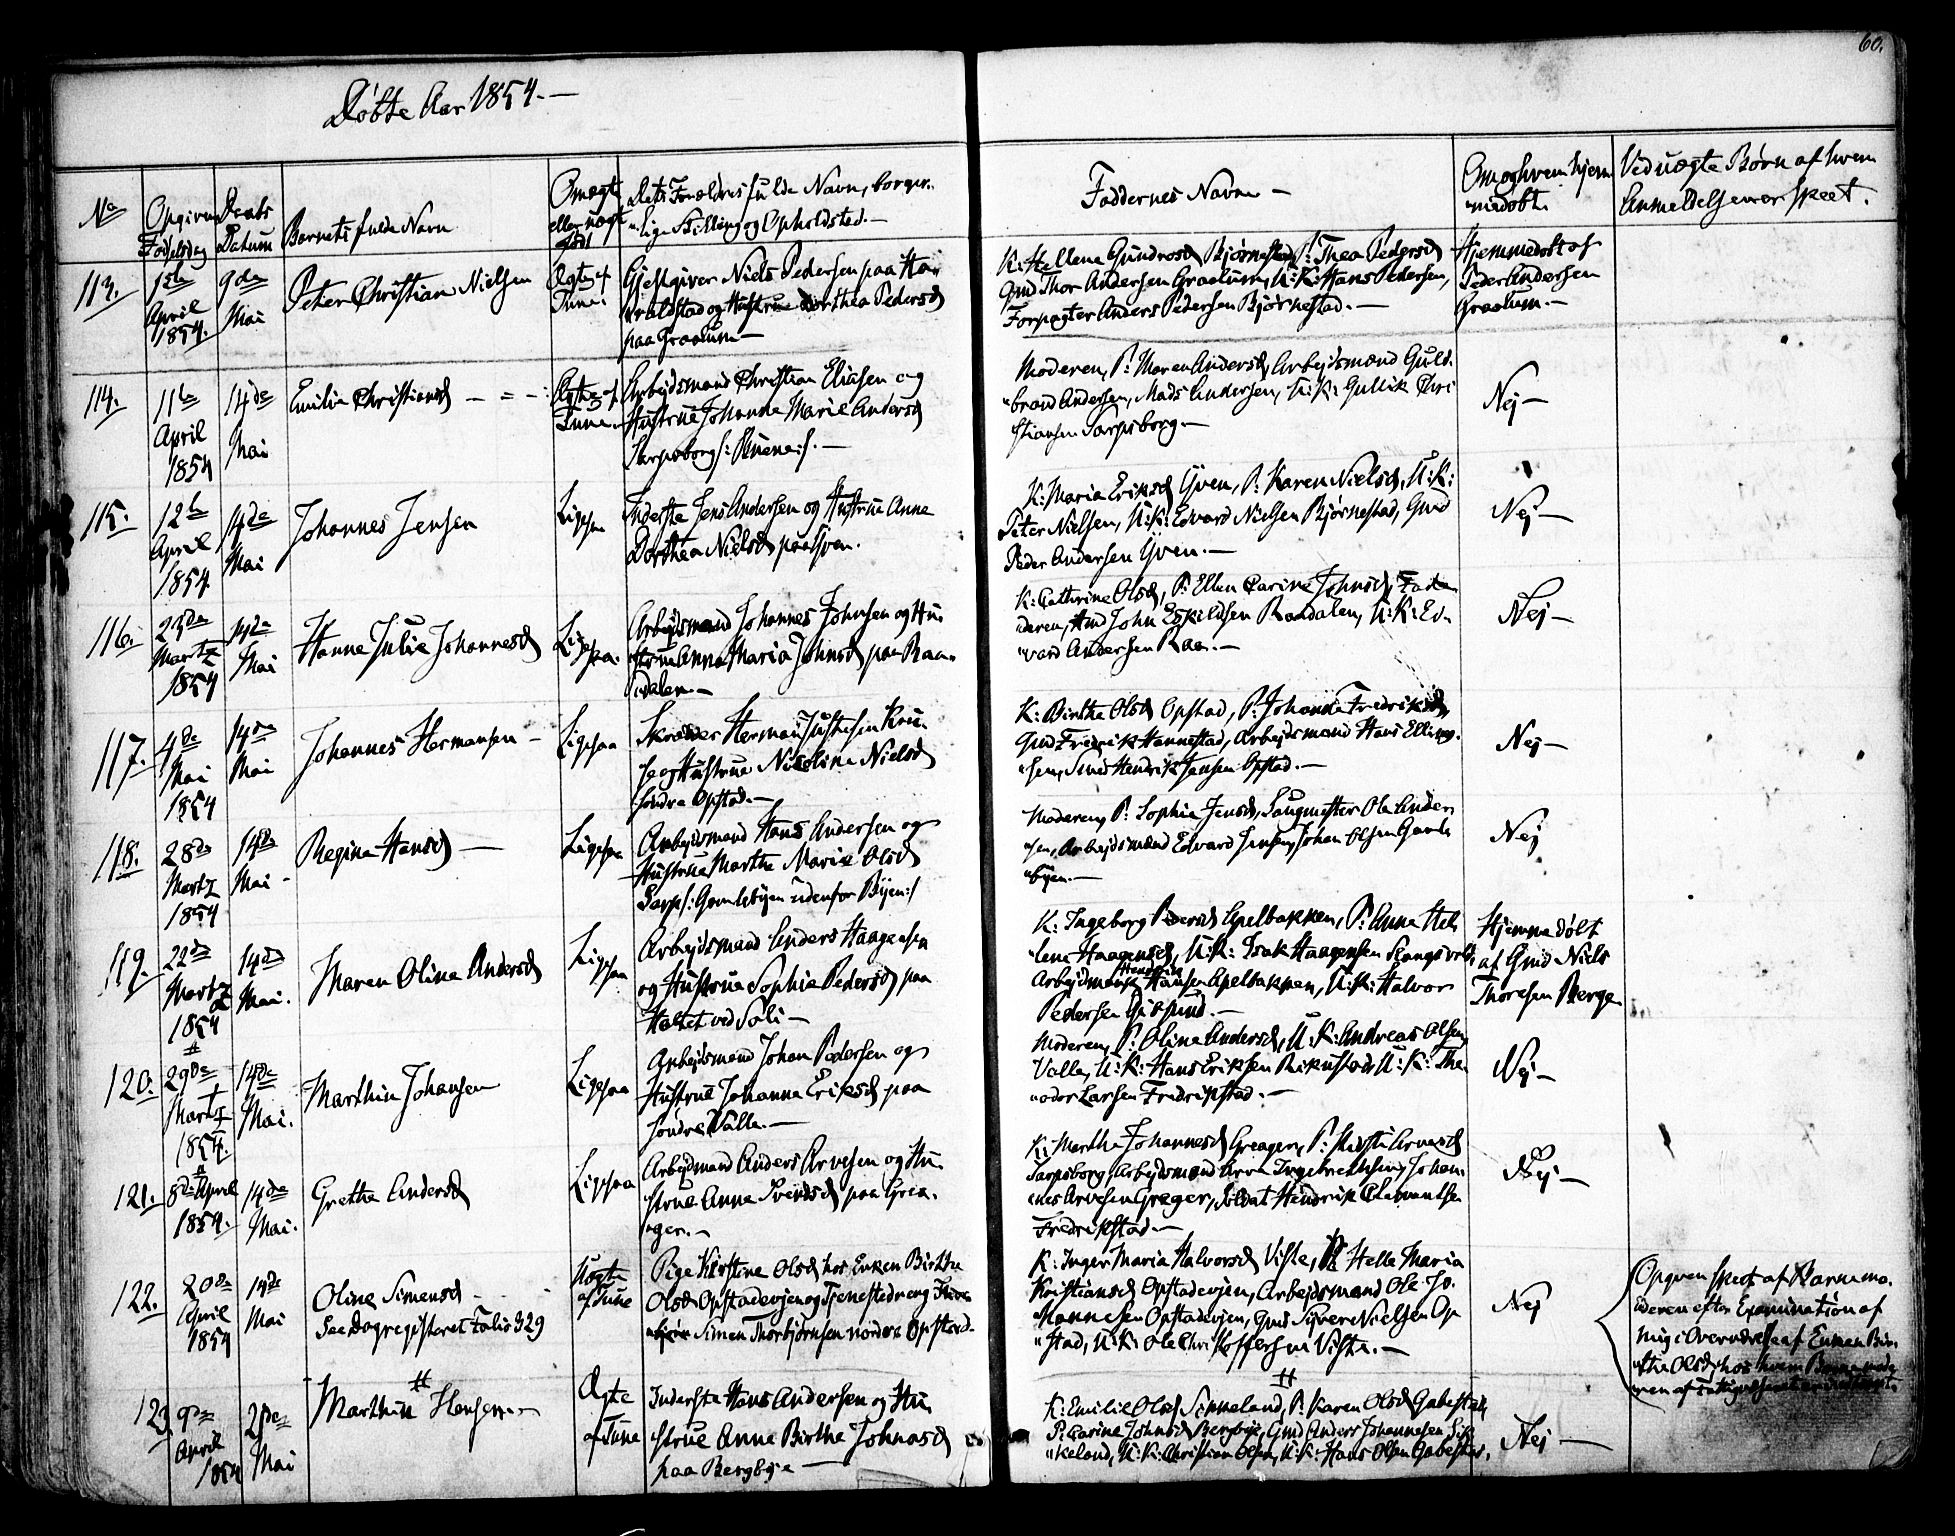 60.
Døbte Aar 1854.—
No
Opgiven Fødselsdag
Daabs Datum
Barnets fulde Navn
Om ægte eller uægte født
Dets Forældres fulde Navn, borger-
lige Stilling og Opholdsted.—
Faddernes Navne —
Om og hvem hjem-
medøbt.
Ved uægte Børn af hvem
Anmeldelsen er skeet.
113.
April
1854.
9de
Mai
Peter Christian Nielsen
Ægte af
Tune.
Gjestgiver Niels Pedersen paa Ha-
raldstad og Hustrue Dorthea Pedersd
paa Graalum—
Gmd Thor Andersen Graalum, U: K: Hans Pedersen,
Forpagter Anders Pedersen Bjørnestad.—
Hjemmedøbt af
Peder Andersen
Graalum.—
114.
11te
April
1854
14de
Mai
Emilie Christiansd
Ægte af
Tune.
Arbejdsmand Christian Eliasen og
Hustrue Johanne Marie Andersd
Moderen, P: Maren Andersd, Arbejdsmænd Guld-
brand Andersen, Mads Andersen, U: K: Gullik Chri
stiansen Sarpsborg.—
Nej—
115.
12te
April
1854
14de
Mai
Johannes Jensen
Ligesaa
Inderste Jens Andersen og Hustrue Anne
Dorthea Nielsd paa Yven.
K: Maria Eriksd Yven, P: Karen Nielsd, U: K:
Peter Nielsen, U: K: Edvard Nielsen Bjørnestad, Gmd
Peder Andersen Yven.—
Nej—
116.
23de
Martz
1854
14de
Mai
Hanne Julie Johannesd
Ligesaa.
Arbejdsmand Johannes Johnsen og Hu-
strue Anne Maria Johnsd paa Raa-
dalen.—
K: Cathrine Olsd, P: Ellen Carine Johnsd, Fa
deren, Gmd John Eskildsen Raadalen, U: K: Ed-
vard Andersen Raa.—
Nej—
117.
4de
Mai
1854
14de
Mai
Johannes Hermansen—
Ligesaa
Skræder Herman Justesen Kru-
se og Hustrue Nicoline Nielsd
søndre Opstad.—
K: Birthe Olsd Opstad, P: Johanne Fredriksd,
Gmd Fredrik Hannestad, Arbejdsmand Hans Elling-
sen, Smed Hendrik Jensen Opstad.—
Nej—
118.
28de
Martz
1854
14de
Mai
Regine Hansd—
Ligesaa
Arbejdsmand Hans Andersen og
Hustrue Marthe Marie Olsd
Sarps/: Gamlebyen udenfor Byen:/
Moderen, P: Sophie Jensd, Saugmester Ole Ander-
sen, Arbejdsmænd Edvard Jensen, Johan Olsen Gamle
byen.—
Nej
119.
22de
Martz
1854
14de
Mai.
Maren Oline Andersd
Ligesaa
Arbejdsmand Anders Haagensen
og Hustrue Sophie Pedersd paa
ved Soli—
K: Ingeborg Pedersd Apelbakken, P: Anne Hel-
lene Haagensd, U: K: Isak Haagensen
Arbejdsmand Hansen Apelbakken, U: K: Halvor
Pedersen
Hjemmedøbt
af Gmd Niels
Thoresen Berge
120.
29de
Martz
1854.
14de
Mai.
Marthin Johansen
Ligesaa
Arbejdsmand Johan Pedersen og
Hustrue Johanne Eriksd paa
søndre Valle.—
Moderen, P: Oline Andersd, U: K: Andreas Olsen
Valle, U: K: Hans Eriksen U: K: The-
odor Larsen Fredrikstad.—
Nej—
121.
8de April
1854.
14de
Mai.
Grethe Andersd
Ligesaa
Arbejdmand Anders Arvesen og Hu-
strue Anne paa Grea-
ger.—
K: Marthe Johannesd Greager, P: Arvesd
Sarpsborg, Arbejdsmænd Arve Ingebrethsen, Johan-
nes Arvesen Greger, Soldat Hendrik Clemmentsen
Fredrikstad.—
Nej—
122.
20de
April
1854
14de
Mai
Oline Simensd
See Dagregisteret Folio 329
Uægte
af Tune
Pige Kirstine Olsd hos Enken Birthe
Olsd Opstadvejen og Tjenestedreng
Simen Thorbjørnsen nordre Opstad.
K: Inger Maria Halvorsd Viste, P: Helle Maria
Kristiansd Opstadvejen, Arbejdsmand Ole Jo-
hannesen Opstadvejen, Gmd Syver Nielsen Op
stad, U: K: Ole Christoffersen Viste.—
Nej
Opgiven skeet af Barnemo-
deren efter Examination af
mig i Overværelse af Enken Bir-
the Olsd, hos hvem
123.
9de
April
1854
Mai
Marthin Hansen.—
Ægte
af Tune
Inderste Hans Andersen og Hu-
strue Anne Birthe Johnasd
paa Bergbye—
K: Emilie Olsd P: Karen Olsd Gabestad
P: Karine Johnsd Bergbye, Gmd Anders Johannesen
U: K: Christian Olsen, U: K: Hans Olsen Gabestad.
Nej—